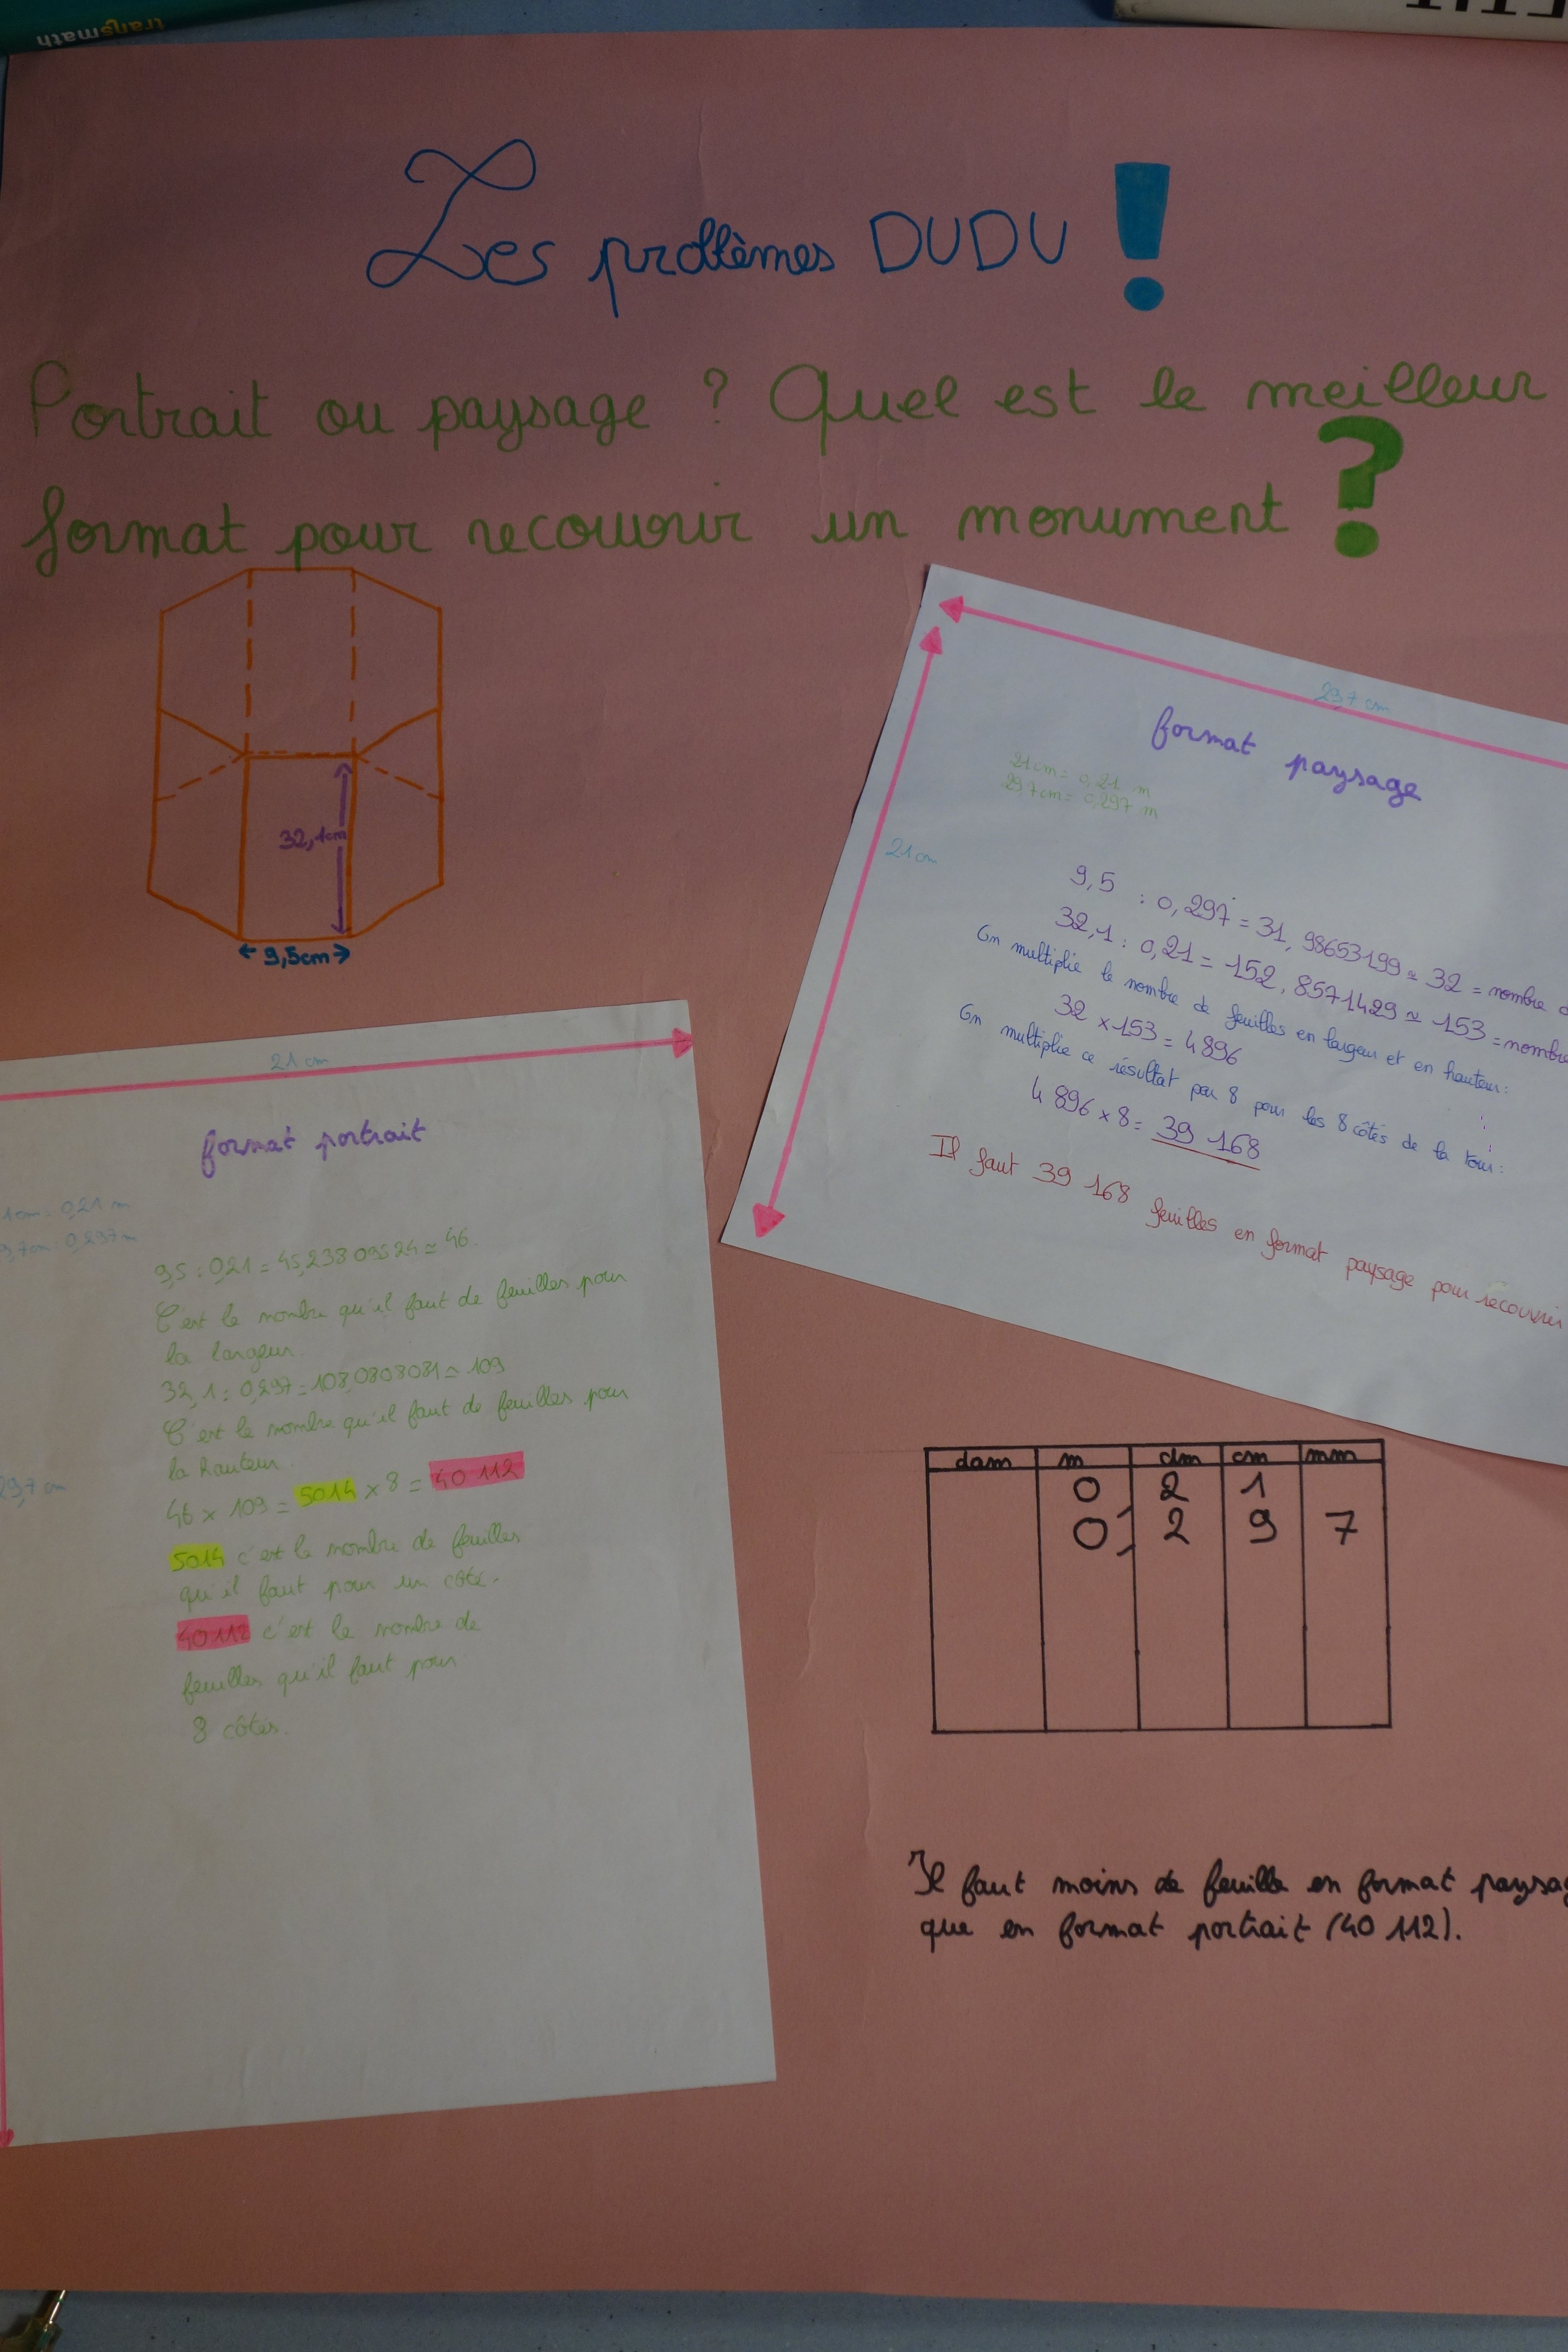 transmath
Les problèmes DUDU !
Portrait ou paysage ? Quel est le meilleur
format pour recouvrir un monument ?
32,1cm
9,5cm
29,7 cm
format paysage
21cm = 0,21 m
29,7cm = 0,297 m
21cm
9,5 : 0,297 = 31,98653199 ≃ 32 = nombre
32,1 : 0,21 = 152,8571429 ≃ 153 = nombre
On multiplie le nombre de feuilles en largeur et en hauteur :
32 × 153 = 4896
On multiplie ce résultat par 8 pour les 8 côtés de la tour :
4 896 × 8 = 39 168
Il faut 39 168 feuilles en format paysage pour recouvrir
21 cm
format portrait
1cm = 0,21 m
9,7cm = 0,297 m
9,5 : 0,21 = 45,23809524 ≃ 46.
C'est le nombre qu'il faut de feuilles pour
la largeur.
32,1 : 0,297 = 108,0808081 ≃ 109
C'est le nombre qu'il faut de feuilles pour
la hauteur.
46 × 109 = 5014 × 8 = 40 112
29,7 cm
5014 c'est le nombre de feuilles
qu'il faut pour un côté.
40112 c'est le nombre de
feuilles qu'il faut pour
8 côtés.
dam m dm cm mm
0 2 1
0, 2 9 7
Il faut moins de feuille en format paysa
que en format portrait (40 112).